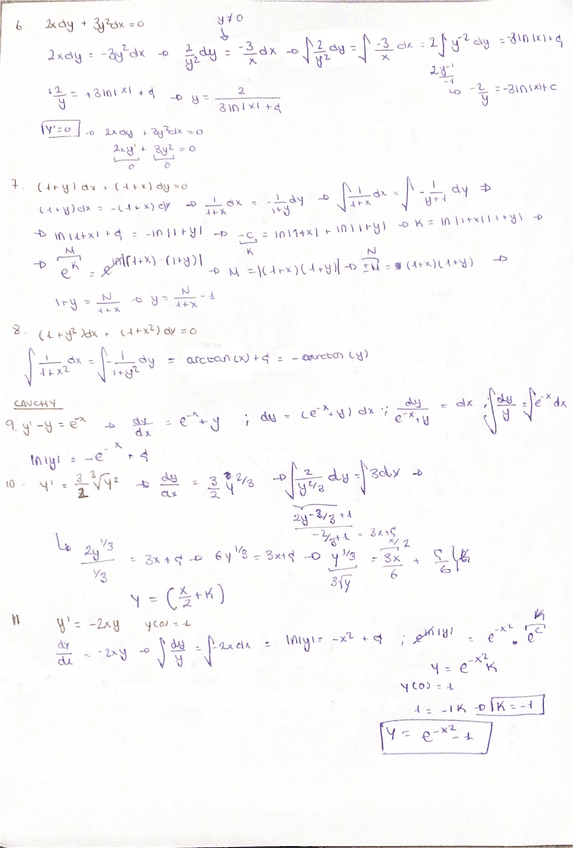 6 2xdy + 3y²dx = 0
y ≠ 0
2xdy = -3y²dx → 2/y² dy = -3/x dx → ∫ 2/y² dy = ∫ -3/x dx = 2∫ y⁻² dy = -3ln|x| + C
2y⁻¹/-1
↳ -2/y = -3ln|x| + C
+2/y = +3ln|x| + C → y = 2/(3ln|x| + C)
Y'=0 → 2xdy + 3y²dx = 0
2xy' + 3y² = 0
0 0
7. (1+y)dx + (1+x)dy = 0
(1+y)dx = -(1+x)dy → 1/(1+x) dx = -1/(1+y) dy → ∫ 1/(1+x) dx = ∫ -1/(y+1) dy ⇒
→ ln|1+x| + C = -ln|1+y| → -C = ln|1+x| + ln|1+y| → K = ln|1+x||1+y| →
K
M N
→ e^K = e^ln|(1+x)·(1+y)| → M = |(1+x)(1+y)| → ±M = (1+x)(1+y) →
1+y = N/(1+x) → y = N/(1+x) - 1
8. (1+y²)dx + (1+x²)dy = 0
∫ 1/(1+x²) dx = ∫ -1/(1+y²) dy = arctan(x) + C = -arctan(y)
CAUCHY
9. y' - y = e⁻ˣ → dy/dx = e⁻ˣ + y ; dy = (e⁻ˣ + y) dx ; dy/(e⁻ˣ+y) = dx ; ∫ dy/y = ∫ e⁻ˣ dx
ln|y| = -e⁻ˣ + C
10. y' = 3/2 ³√y² → dy/dx = 3/2 y^2/3 → ∫ 2/y^2/3 dy = ∫ 3dx →
2y^-2/3+1 / -2/3+1 = 3x + C
↳ 2y^1/3 / 1/3 = 3x + C → 6y^1/3 = 3x + C → y^1/3 = 3x/6 + C/6
x/2
³√y
y = (x/2 + K)
11 y' = -2xy y(0) = 1
dy/dx = -2xy → ∫ dy/y = ∫ -2xdx = ln|y| = -x² + C ; e^ln|y| = e^-x² · e^C
K
y = e^-x² K
y(0) = 1
1 = -1K → K = -1
y = e^-x² - 1